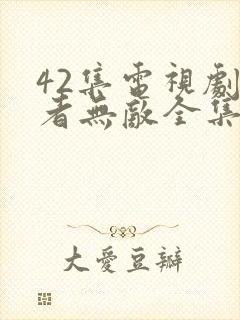 42集電視劇
者無敵全集
大愛豆瓣